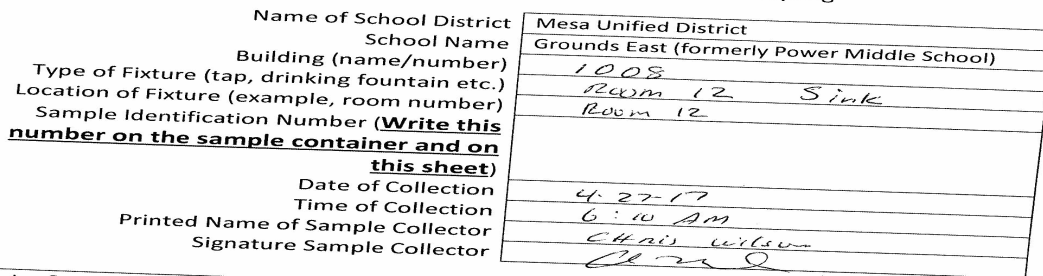 Name of School District Mesa Unified District
School Name Grounds East (formerly Power Middle School)
Building (name/number) 1008
Type of Fixture (tap, drinking fountain etc.) Room 12 Sink
Location of Fixture (example, room number) Room 12
Sample Identification Number (Write this
number on the sample container and on
this sheet)
Date of Collection 4-27-17
Time of Collection 6:10 AM
Printed Name of Sample Collector CHris Wilson
Signature Sample Collector